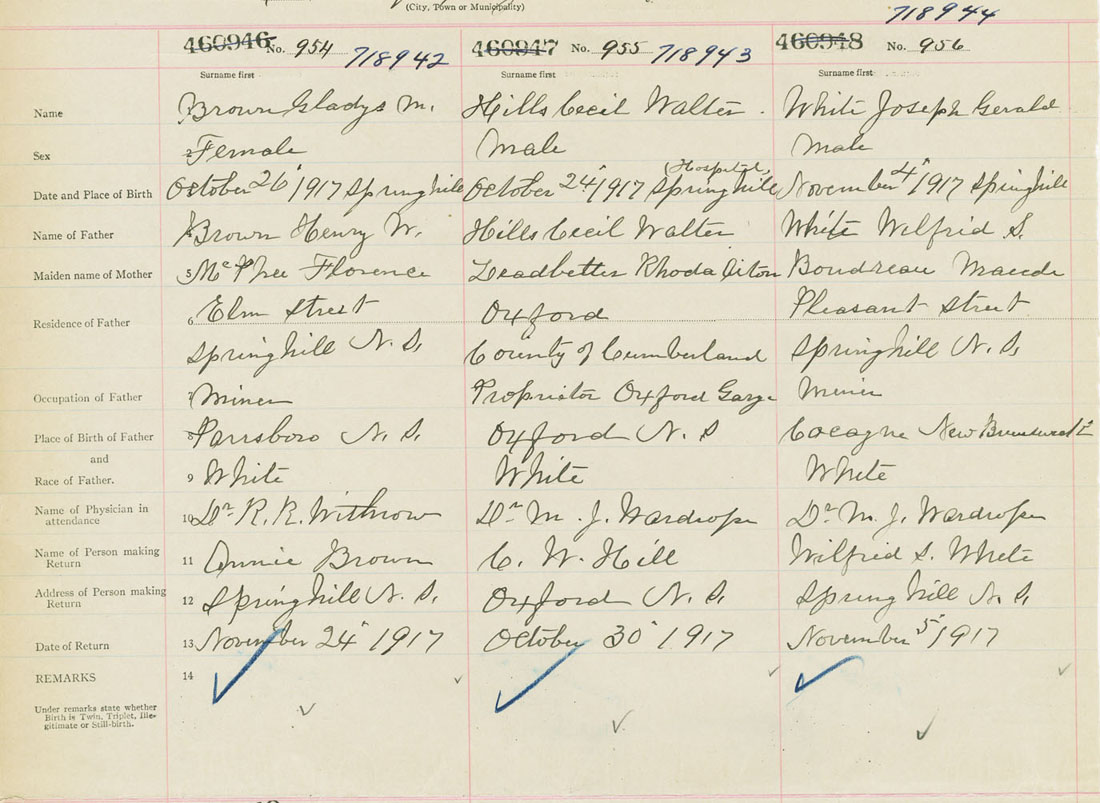 (City, Town or Municipality)
718944
460946 No. 954 718942 460947 No. 955 718943 460948 No. 956
Surname first Surname first Surname first
Name Brown Gladys M. Hills Cecil Walter. White Joseph Gerald
Sex 2 Female Male Male
Hospital
Date and Place of Birth October 26 1917 Springhill October 24 1917 Springhill November 4 1917 Springhill
Name of Father Brown Henry W. Hills Cecil Walter White Wilfrid S.
Maiden name of Mother 5 McPhee Florence Leadbetter Rhoda Boudreau Maude
Residence of Father 6 Elm Street Oxford Pleasant Street
Springhill N.S. County of Cumberland Springhill N.S.
Occupation of Father 7 Miner Proprietor Oxford Garge Miner
Place of Birth of Father 8 Parrsboro N.S. Oxford N.S Cocagne New Brunswick
and
Race of Father. 9 White White White
Name of Physician in attendance 10 Dr R. R. Withrow Dr M. J. Wardrope Dr M. J. Wardrope
Name of Person making Return 11 Annie Brown C. W. Hill Wilfrid S. White
Address of Person making Return 12 Springhill N.S. Oxford N.S. Springhill N.S.
Date of Return 13 November 24 1917 October 30 1917 November 5 1917
REMARKS 14
Under remarks state whether
Birth is Twin, Triplet, Ille-
gitimate or Still-birth.